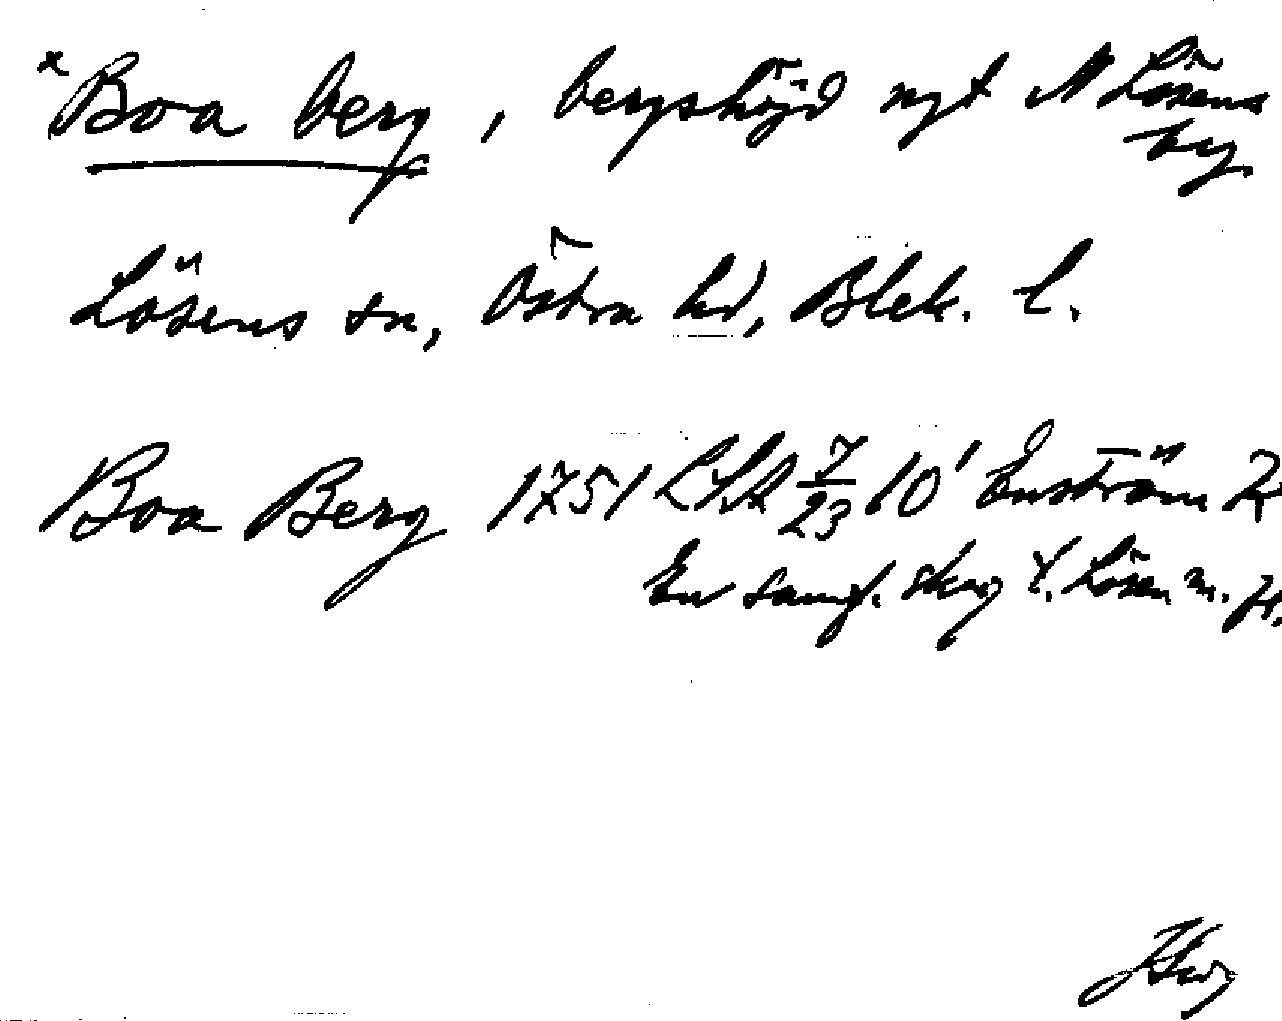 x Boa berg, bergshöjd nyt N Lösens
by
Lösens sn, Östra hd, Blek. l.
Boa Berg 1751 LSA 7/23 10' Enström K
En samf. skog t. Lösen m. fl.